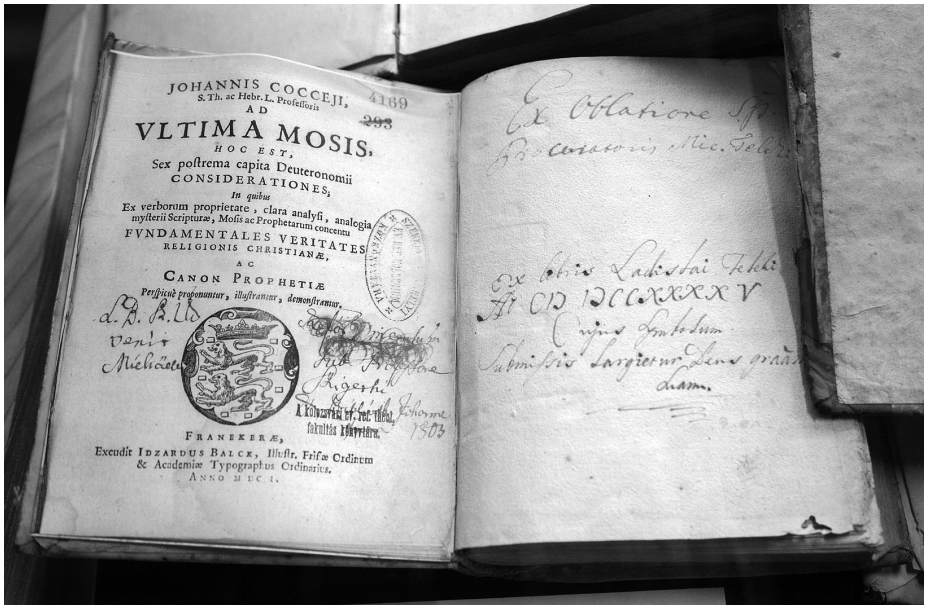 JOHANNIS COCCEJI,
S. Th. ac Hebr. L. Professoris
4169
293
AD
VLTIMA MOSIS,
HOC EST,
Sex postrema capita Deuteronomii
CONSIDERATIONES,
In quibus
Ex verborum proprietate, clara analysi, analogia
mysterii Scripturæ, Mosis ac Prophetarum concentu
FVNDAMENTALES VERITATES
RELIGIONIS CHRISTIANÆ,
AC
CANON PROPHETIÆ
Perspicuè proponuntur, illustrantur, demonstrantur.
venit
A kolozsvári ev. ref. theol.
fakultás könyvtára.
1803
FRANEKERÆ,
Excudit IDZARDUS BALCK, Illustr. Frisiæ Ordinum
& Academiæ Typographus Ordinarius.
ANNO
Ex Oblatione
Procuratoris Mic.
Ex libris Ladislai Teleki
Aō CIƆ IƆCCXXXXV
Cujus Symbolum
Submissis Largietur Deus